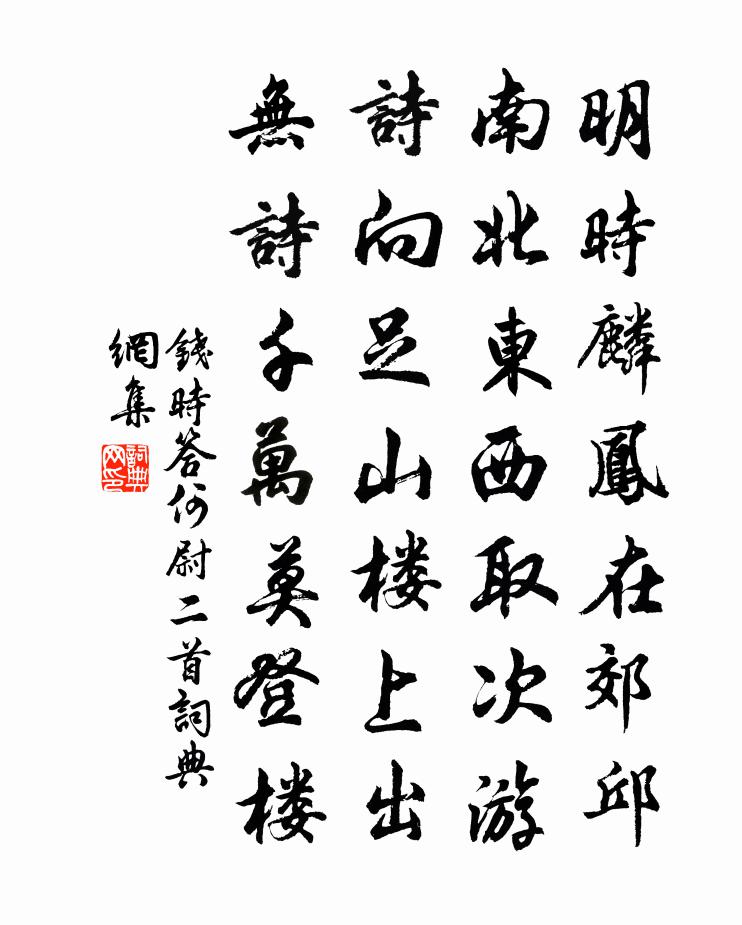 明時麟鳳在郊邱
南北東西取次游
詩向足山楼上出
無詩千萬莫登楼
錢時答何尉二首詞典
網集
詞典
网印